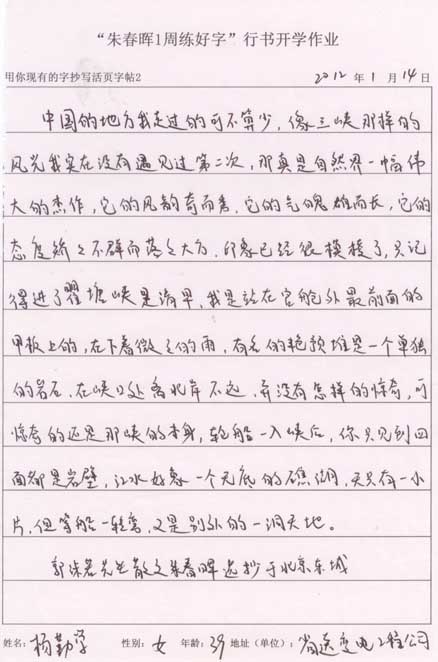 “朱春晖1周练好字”行书开学作业
用你现有的字抄写活页字帖2 2012年1月14日
中国的地方我走过的可不算少，像三峡那样的
风光我实在没有遇见过第二次，那真是自然界一幅伟
大的杰作，它的风韵奇而秀，它的气魄雄而长，它的
态度矫矫不群而落落大方，印象已经很模模了，只记
得进了瞿塘峡是清早，我是站在官舱外最前面的
甲板上的，在下着微微的雨，有名的艳预堆是一个单独
的岩石，在峡口处离北岸不远，并没有怎样的惊奇，可
惊奇的还是那峡的本身，轮船一入峡后，你只见到四
面都是岩壁，江水好象一个无底的礁湖，天只有一小
片，但等船一转弯，又是别外的一洞天地。
郭沫若先生散文朱春晖选抄于北京东城
姓名：杨勤学 性别：女 年龄：39 地址（单位）：省送变电工程公司